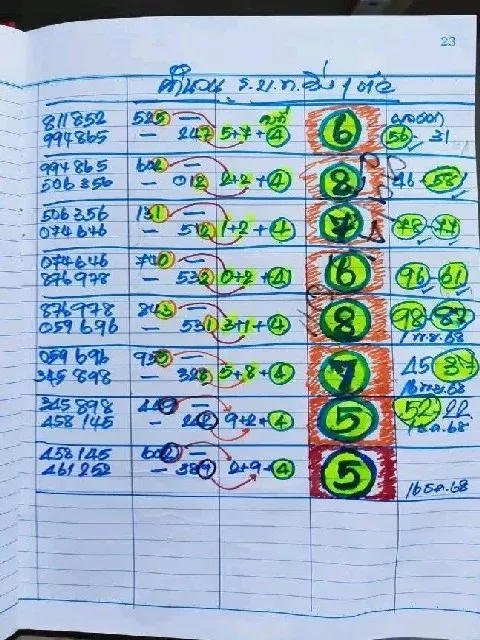 23
คำนวน ร.บ.ท.วิ่ง 1 ตัว
811852 525 — ผลออก
994865 — 247 5+7+4 6 56 - 31
994865 602 —
506356 — 012 2+2+4 8 46 - 58
506356 131 —
074646 — 512 1+2+4 7 78 - 77
074646 740 —
876978 — 532 0+2+4 6 96 61
876978 843 — 98 - 87
059696 — 531 3+1+4 8 1 พ.ย.68
059696 935 — 45 37
345898 — 328 5+8+4 7 16 พ.ย.68
345898 449 — 52 22
458145 — 242 9+2+4 5 1 ธ.ค.68
458145 602 —
461252 — 389 2+9+4 5 16 ธ.ค.68